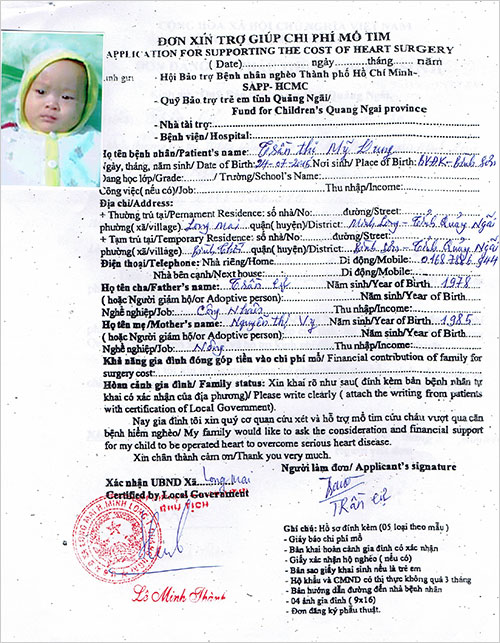 ĐƠN XIN TRỢ GIÚP CHI PHÍ MỔ TIM
APPLICATION FOR SUPPORTING THE COST OF HEART SURGERY
( Date)..........ngày...........tháng....... năm
- Hội Bảo trợ Bệnh nhân nghèo Thành phố Hồ Chí Minh-
SAPP- HCMC
- Quỹ Bảo trợ trẻ em tỉnh Quảng Ngãi/
Fund for Children's Quang Ngai province
- Nhà tài trợ:
- Bệnh viện/ Hospital:
Họ tên bệnh nhân/Patient's name: Trần Thị Mỹ Dung
Ngày, tháng, năm sinh/ Date of Birth: 24-07-2015 Nơi sinh/ Place of Birth: BVĐK - Bình Sơn
Đang học lớp/Grade:........../ Trường/School's Name:
Công việc( nếu có)/Job: Thu nhập/Income:
Địa chỉ/Address:
+ Thường trú tại/Permanent Residence: số nhà/No: đường/Street:
phường( xã/village). Long Mai quận( huyện)/District: Minh Long - Tỉnh Quảng Ngãi
+ Tạm trú tại/Temporary Residence: số nhà/No: đường/Street:
phường( xã/village). quận( huyện)/District: Bình Sơn - Tỉnh Quảng Ngãi
Điện thoại/Telephone: Nhà riêng/Home Di động/Mobile:
Nhà bên cạnh/Next house: Di động/Mobile:
Họ tên cha/Father's name: Trần Cự Năm sinh/Year of Birth. 1978
( hoặc Người giám hộ/or Adoptive person): Năm sinh/Year of Birth
Nghề nghiệp/Job: Công Nhân Thu nhập/Income:
Họ tên mẹ/Mother's name: Nguyễn Thị Vy Năm sinh/Year of Birth. 1985
( hoặc Người giám hộ/or Adoptive person): Năm sinh/Year of Birth
Nghề nghiệp/Job: Nông Thu nhập/Income:
Khả năng gia đình đóng góp tiền vào chi phí mổ/ Financial contribution of family for
surgery cost:
Hoàn cảnh gia đình/ Family status: Xin khai rõ như sau( đính kèm bản bệnh nhân tự
khai có xác nhận của địa phương)/ Please write clearly ( attach the writing from patients
with certification of Local Government).
Nay gia đình tôi xin quý cơ quan cứu xét và hỗ trợ mổ tim cứu cháu vượt qua căn
bệnh hiểm nghèo/ My family would like to ask the consideration and financial support
for my child to be operated heart to overcome serious heart disease.
Xin chân thành cảm ơn/Thank you very much.
Người làm đơn/ Applicant's signature
Xác nhận UBND Xã Long Mai
Certified by Local Government
CHỦ TỊCH
Trần Cự
Lê Minh Thành
Ghi chú: Hồ sơ đính kèm (05 loại theo mẫu )
- Giấy báo chi phí mổ
- Bản khai hoàn cảnh gia đình có xác nhận
- Giấy xác nhận hộ nghèo ( nếu có)
- Bản sao giấy khai sinh nếu là trẻ em
- Hộ khẩu và CMND có thị thực không quá 3 tháng
- Bản hướng dẫn đường đến nhà bệnh nhân
- 04 ảnh gia đình ( 9x16)
- Đơn đăng ký phẫu thuật.